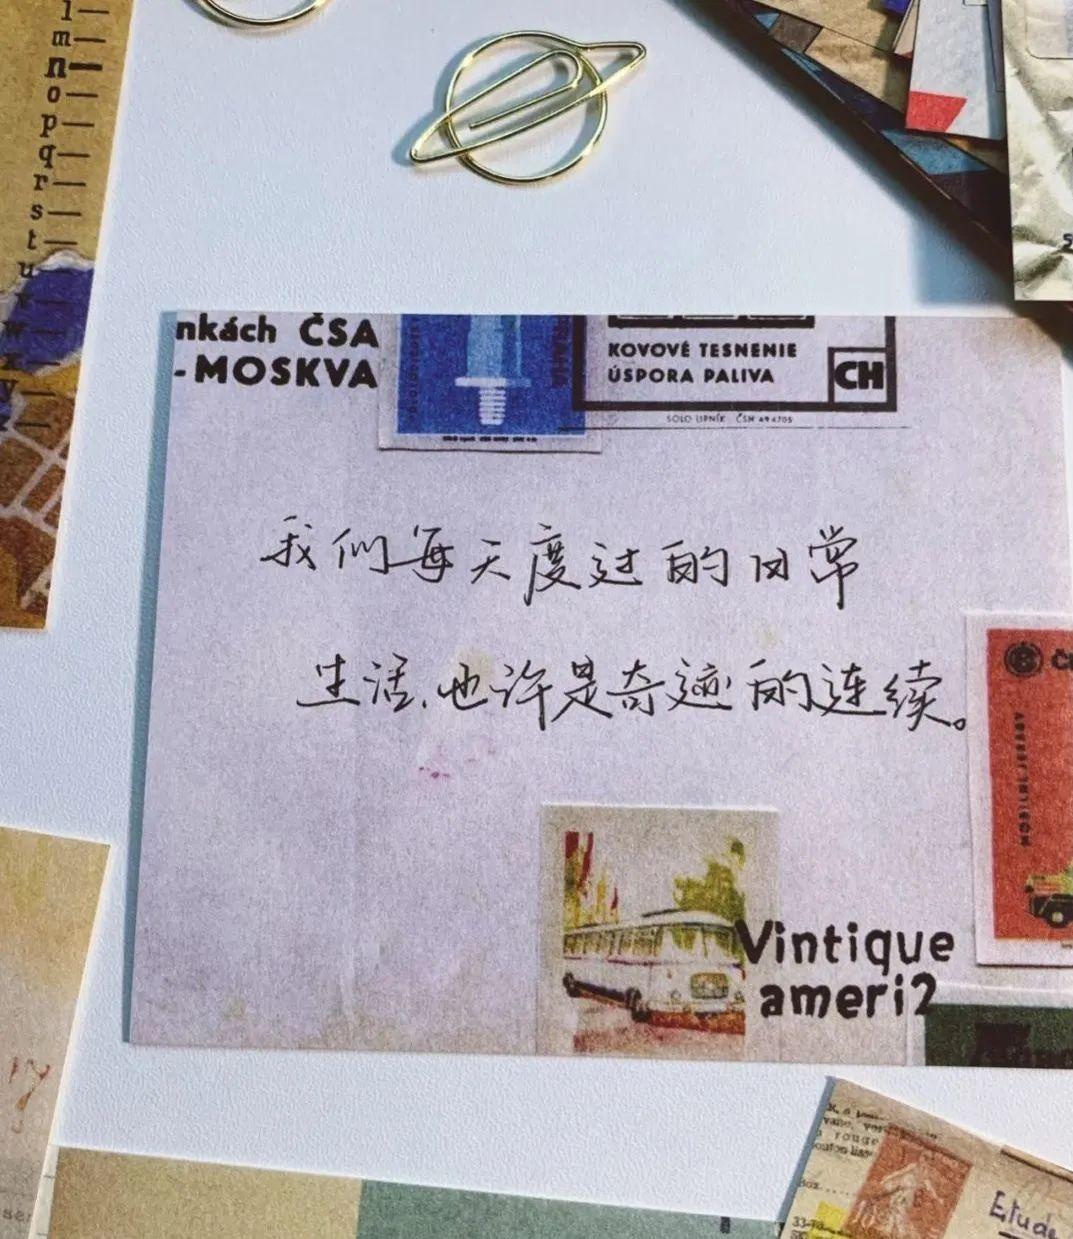 l
m
n
o
p
q
r
s
t
u
v
w
x
y
nkách ČSA
-MOSKVA
KOVOVÉ TESNENIE
ÚSPORA PALIVA
CH
SOLO LIPNÍK ČSN 494705
我们每天度过的日常
生活,也许是奇迹的连续。
Vintique
ameri2
rouge
33-70
Etude